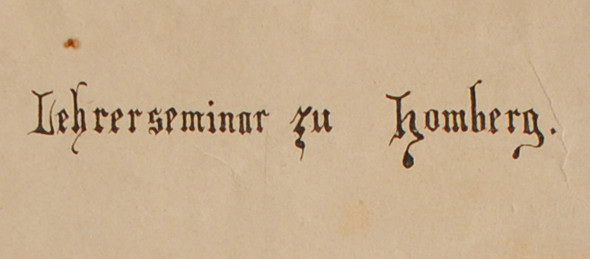 Lehrerseminar zu Homberg.